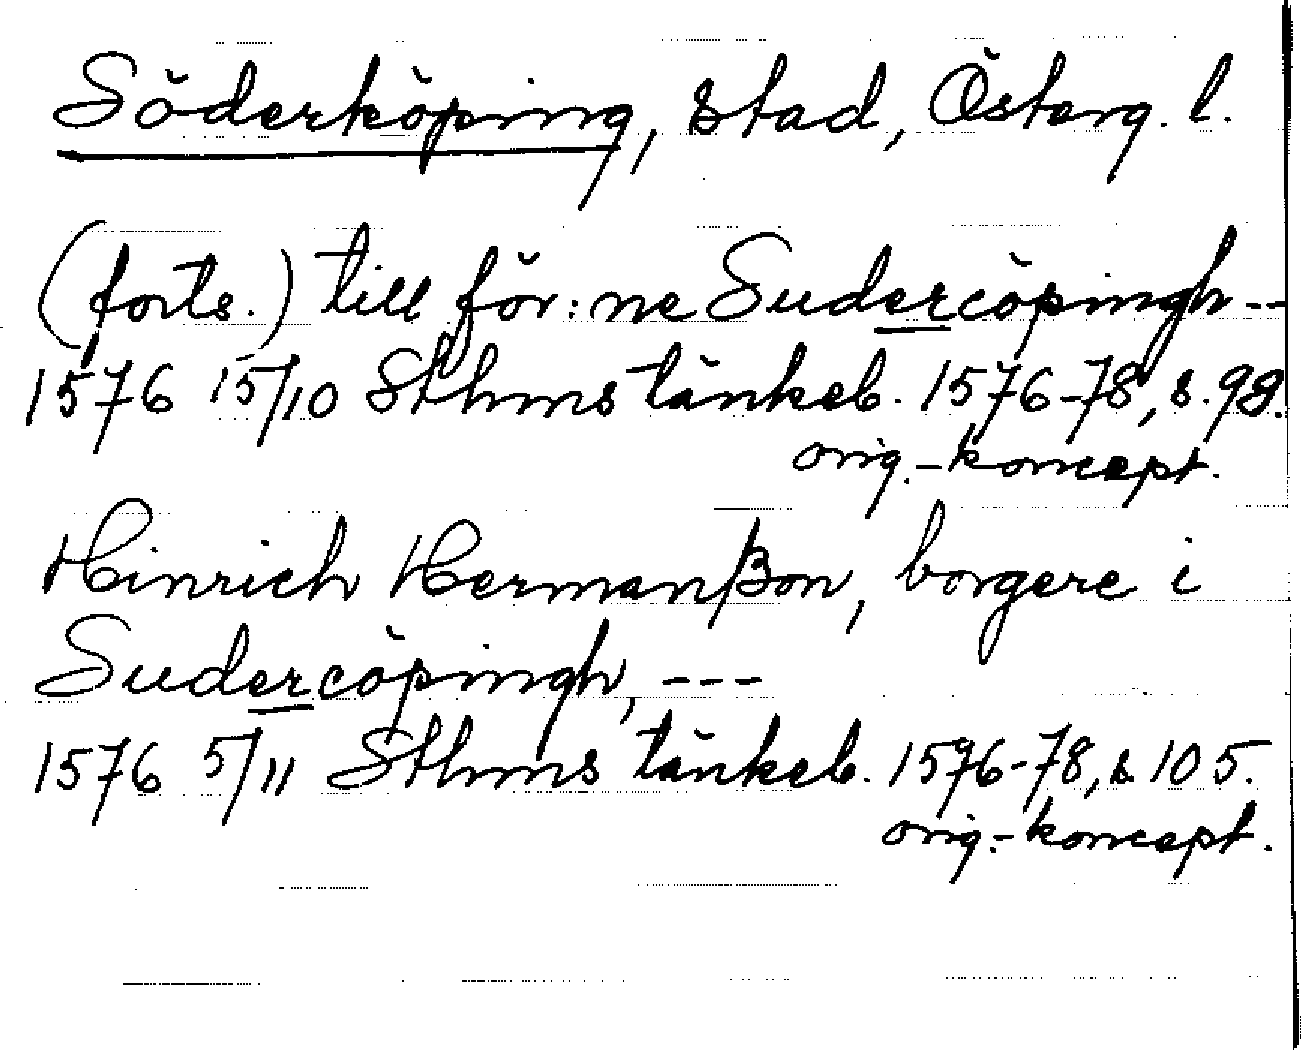 Söderköping, stad, Österg. l.
(forts.) till för:ne Sudercöpingh --
1576 15/10 Sthms tänkeb. 1576-78, s. 98.
orig.-koncept.
Hinrich Hermanßon, borgere i
Sudercöpingh, ---
1576 5/11 Sthms tänkeb. 1576-78, s 105.
orig.-koncept.